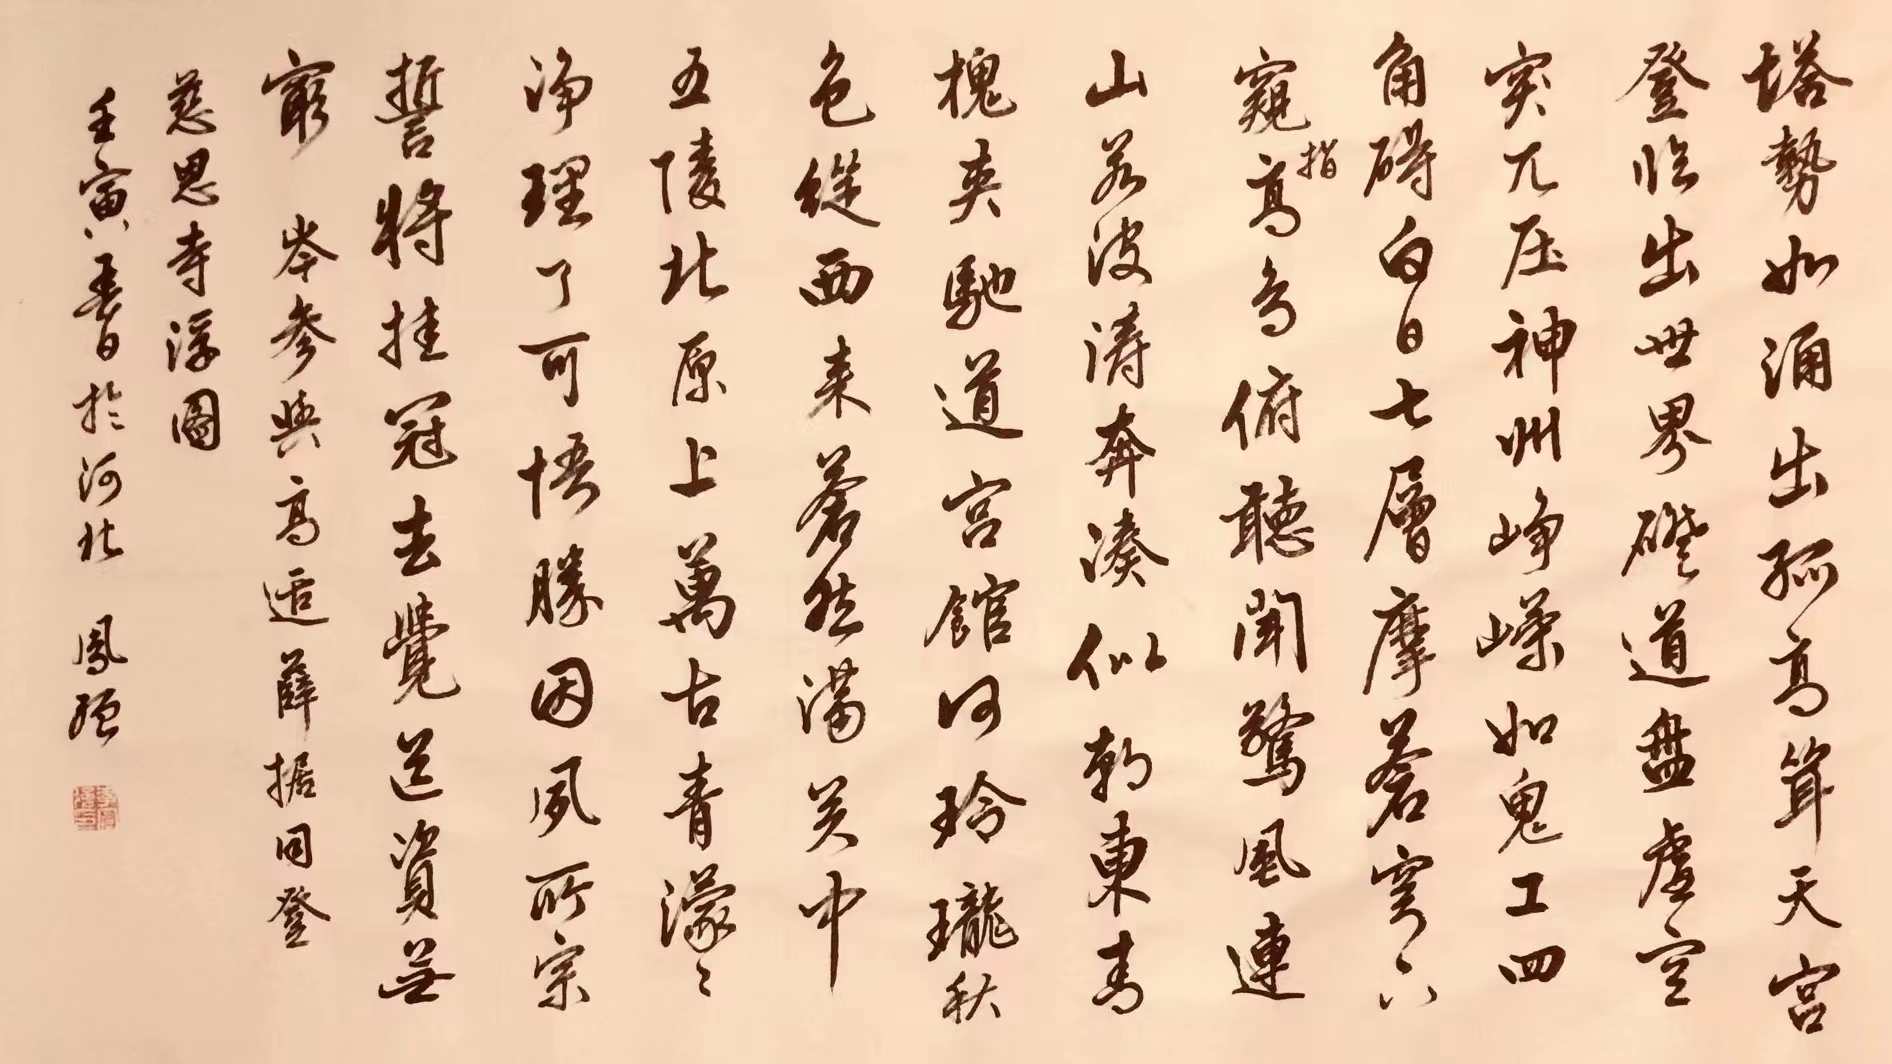 塔勢如涌出孤高耸天宫
登临出世界磴道盤虚空
突兀压神州峥嵘如鬼工四
角碍白日七層摩蒼穹下
窺指高鸟俯聽聞驚風連
山若波涛奔湊似朝東青
槐夹馳道宫館何玲瓏秋
色從西来蒼然满关中
五陵北原上萬古青濛々
净理了可悟勝因夙所宗
誓将挂冠去覺道資無
窮 岑参與高适薛据同登
慈恩寺浮圖
壬寅春日於河北 鳳强